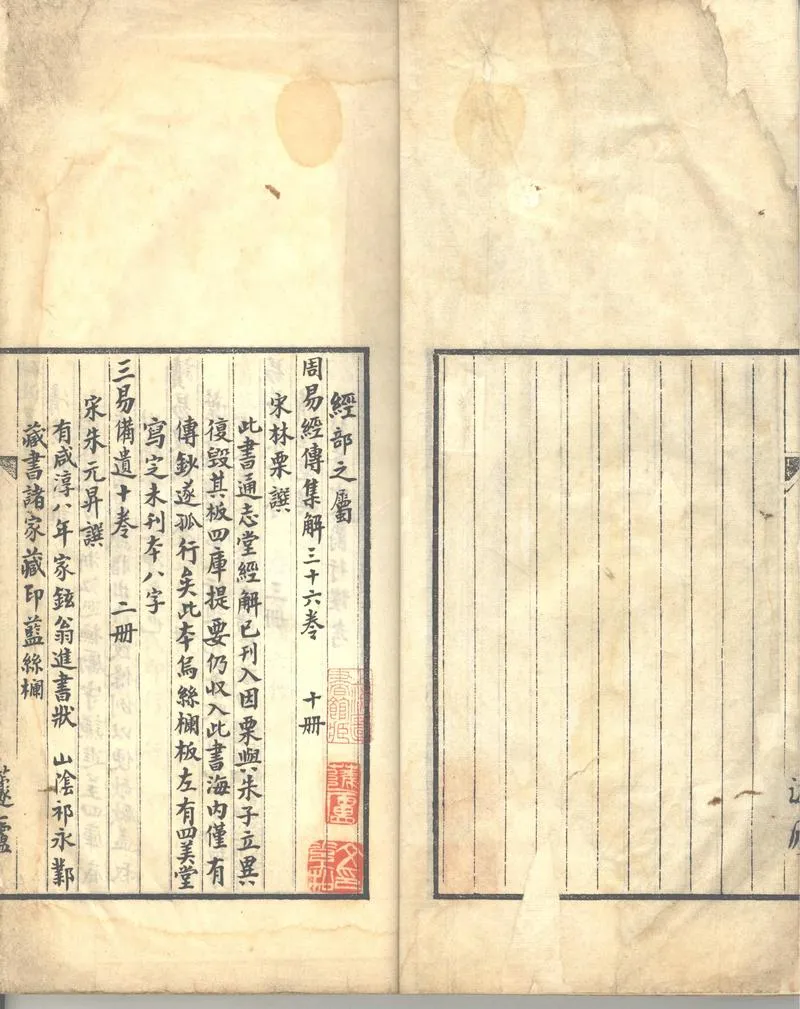 經部之屬
周易經傳集解三十六卷 十册
宋林栗譔
此書通志堂經解已刊入因栗與朱子立異
復毀其板四庫提要仍收入此書海内僅有
傳鈔遂孤行矣此本烏絲欄板左有四美堂
寫定未刊本八字
三易備遺十卷 二册
宋朱元昇譔
有咸淳八年家鉉翁進書狀 山陰祁永鄴
藏書諸家藏印藍絲欄